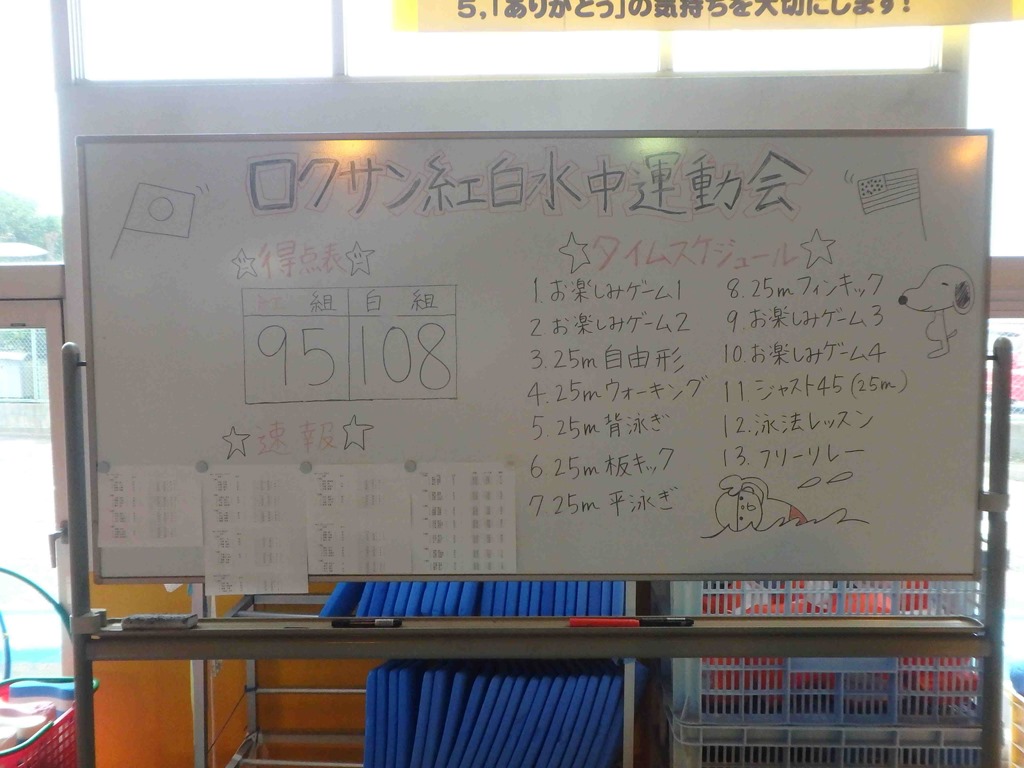 5,「ありがとう」の気持ちを大切にします!
ロクサン紅白水中運動会
得点表
紅 組 白 組
95 108
速報
タイムスケジュール
1. お楽しみゲーム1
2. お楽しみゲーム2
3. 25m 自由形
4. 25m ウォーキング
5. 25m 背泳ぎ
6. 25m 板キック
7. 25m 平泳ぎ
8. 25m フィンキック
9. お楽しみゲーム3
10. お楽しみゲーム4
11. ジャスト45 (25m)
12. 泳法レッスン
13. フリーリレー